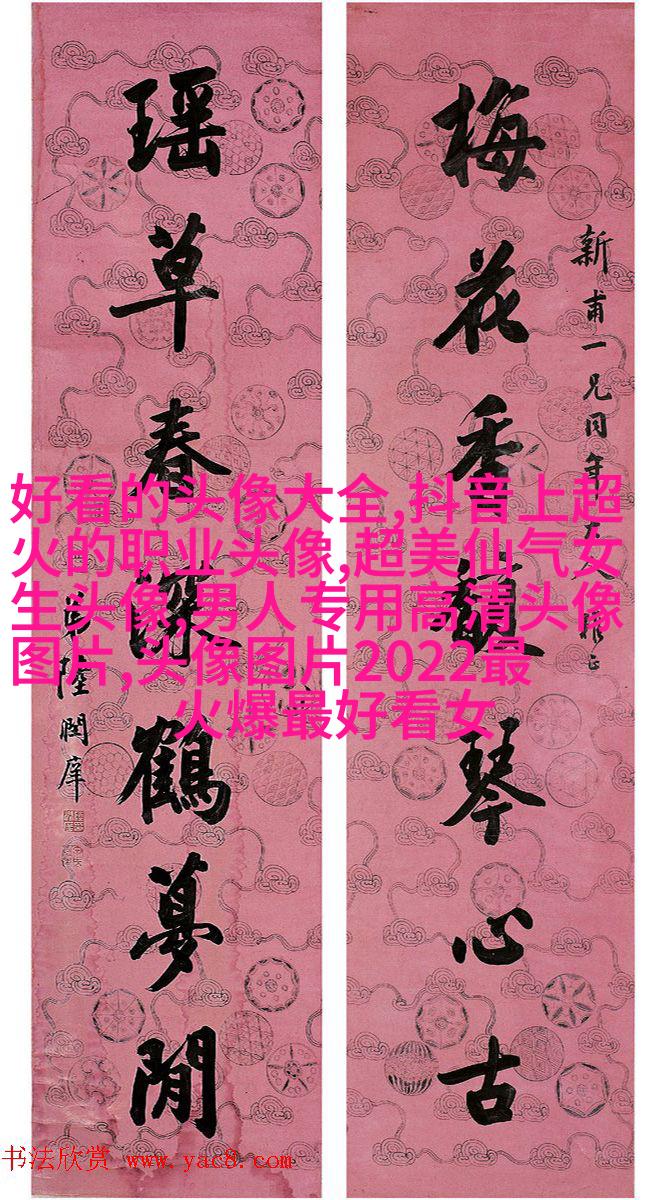 新甫一兄同年大人雅正
梅花香馥琴心古
瑶草春深鶴夢閒
弟陸潤庠
好看的头像大全,抖音上超
火的职业头像,超美仙气女
生头像,男人专用高清头像
图片,头像图片2022最
火爆最好看女
书法欣赏 www.yac8.com